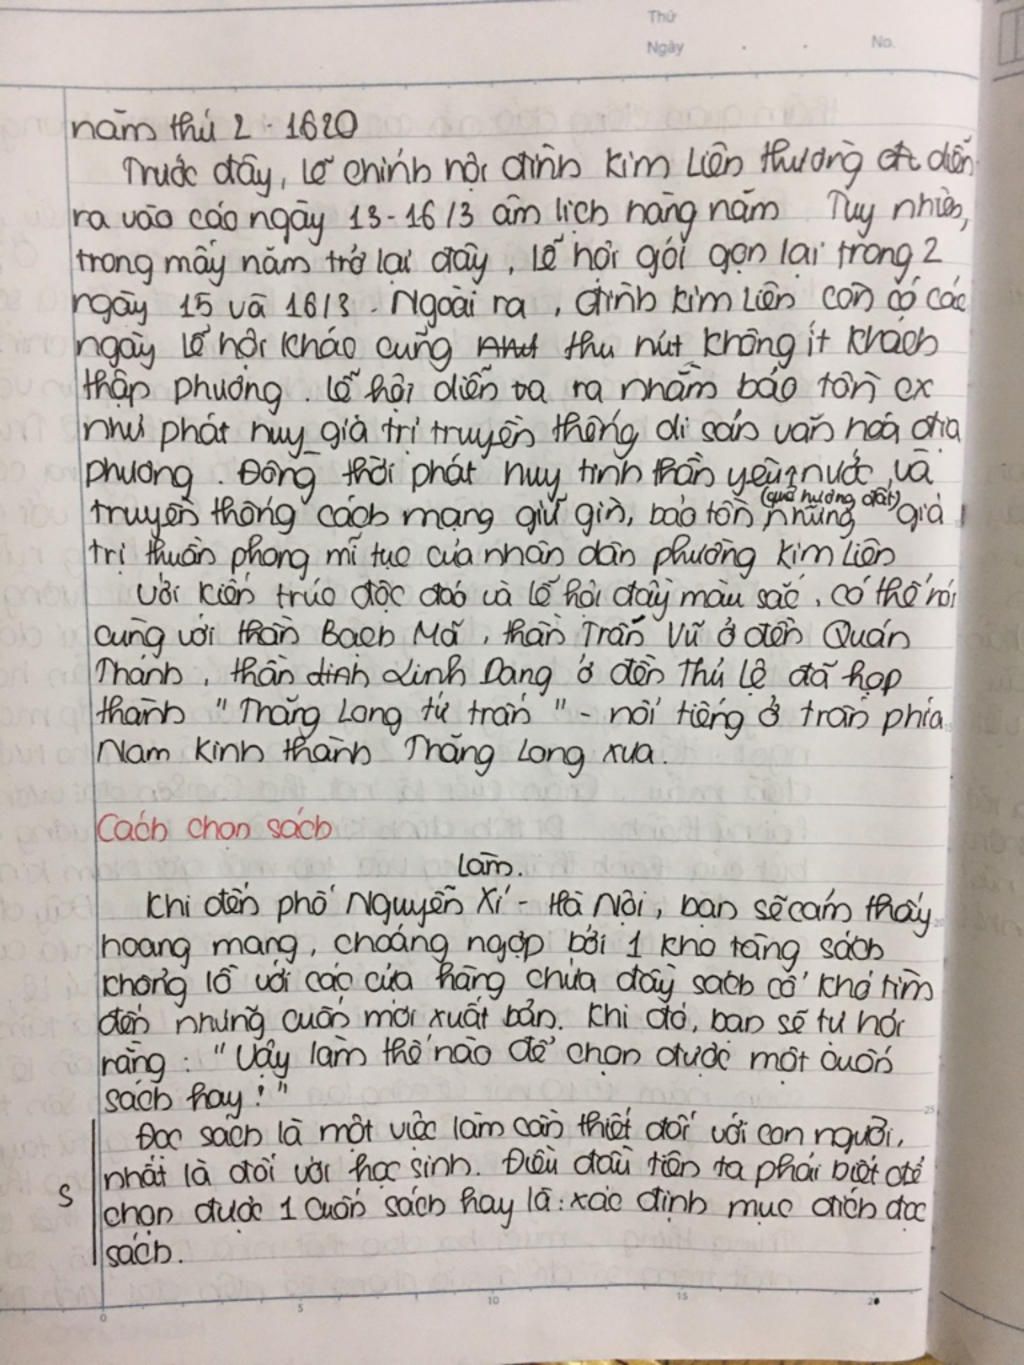 Thứ
Ngày . . No.
năm thứ 2 - 1620
Trước đây, lễ chính hội đình Kim Liên thường diễn
ra vào các ngày 13-16/3 âm lịch hàng năm Tuy nhiên,
trong mấy năm trở lại đây, lễ hội gói gọn lại trong 2
ngày 15 và 16/3. Ngoài ra, đình Kim Liên còn có các
ngày lễ hội khác cũng thu hút không ít khách
thập phương. Lễ hội diễn ra ra nhằm bảo tồn
như phát huy giá trị truyền thống di sản văn hoá địa
phương. Đồng thời phát huy tinh thần yêu nước, và
(quê hương đất)
truyền thống cách mạng giữ gìn, bảo tồn những giá
trị thuần phong mĩ tục của nhân dân phường Kim Liên
Với kiến trúc độc đáo và lễ hội đầy màu sắc, có thể nói
cùng với thần Bạch Mã, thần Trấn Vũ ở đền Quán
Thánh, thần Linh Dang ở đền Thủ Lệ đã họp
thành "Thăng Long tứ trấn" - nổi tiếng ở trấn phía
Nam kinh thành Thăng Long xưa.
Cách chọn sách
Làm.
Khi đến phố Nguyễn Xí - Hà Nội, bạn sẽ cảm thấy
hoang mang, choáng ngợp bởi 1 kho tàng sách
khổng lồ với các cửa hàng chứa đầy sách cổ khó tìm
đến những cuốn mới xuất bản. Khi đó, bạn sẽ tự hỏi
rằng: "Vậy làm thế nào để chọn được một cuốn
sách hay!"
Đọc sách là một việc làm cần thiết đối với con người,
nhất là đối với học sinh. Điều đầu tiên ta phải biết để
S
chọn được 1 cuốn sách hay là: xác định mục đích đọc
sách.
25
0 5 10 15 20